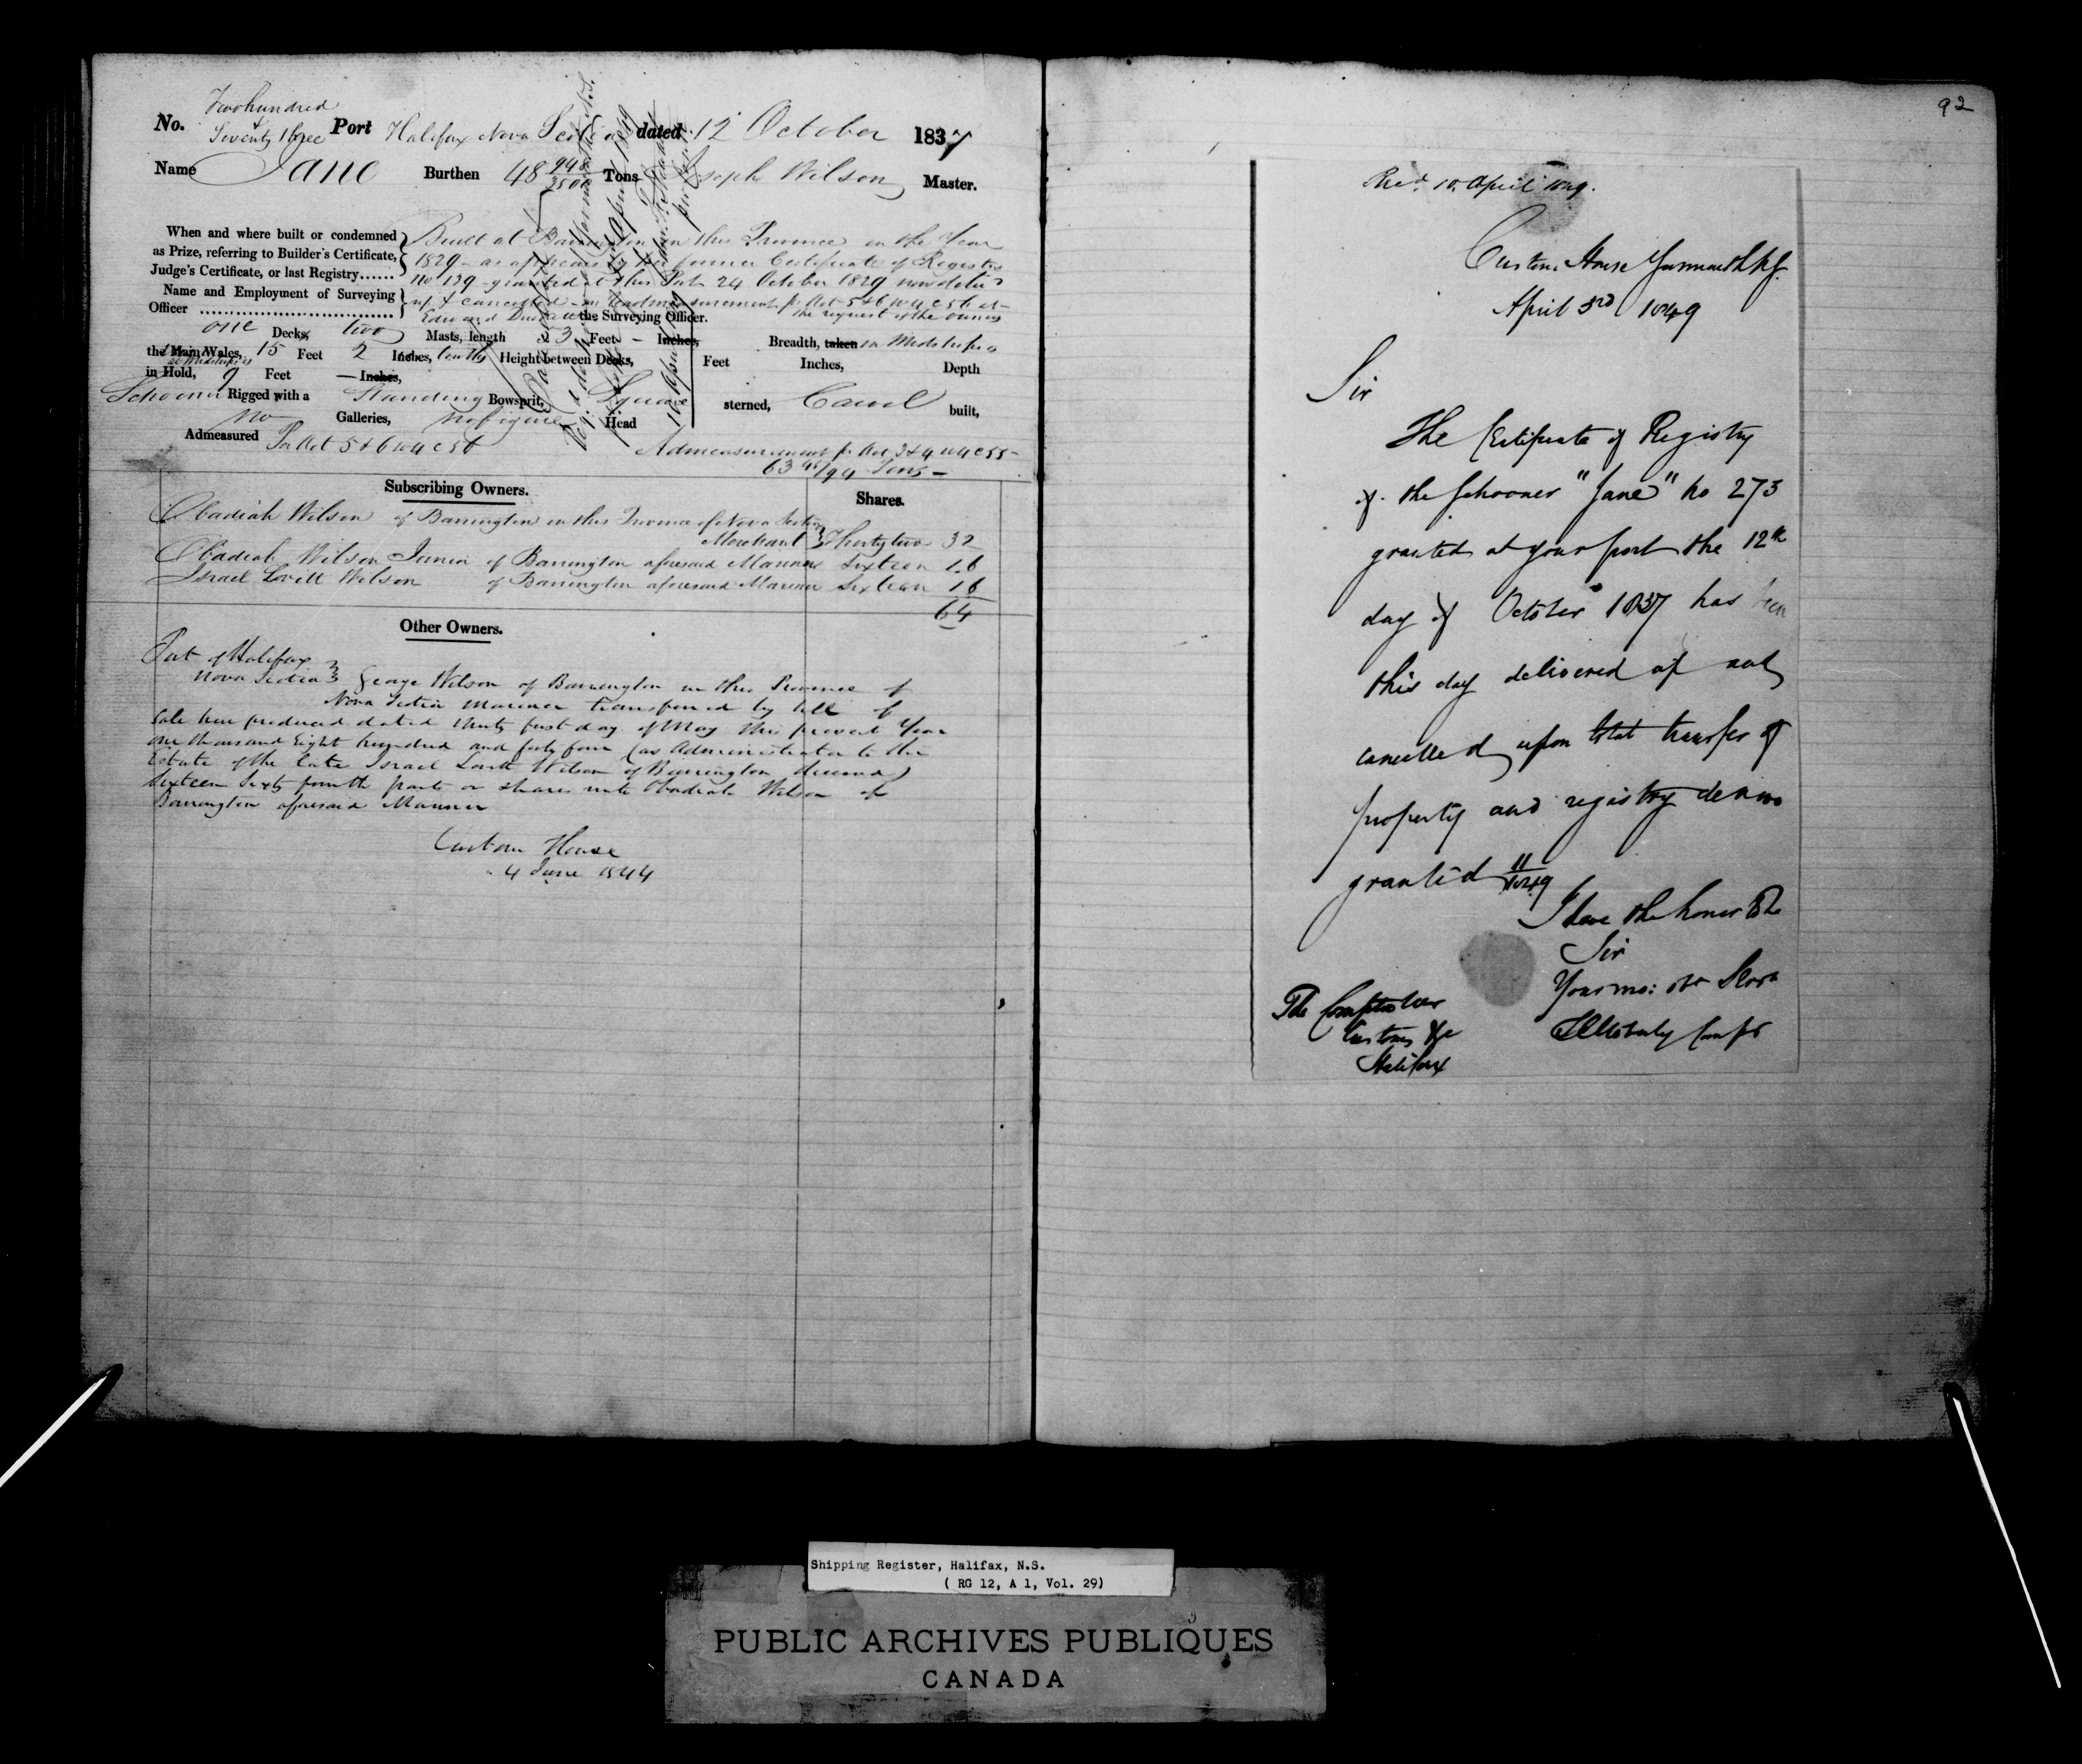 Two hundred
&
No. Seventy three Port Halifax Nova Scotia dated 12 October 1837
Name Jane Burthen 48 948/3500 Tons Joseph Wilson Master.
When and where built or condemned
as Prize, referring to Builder's Certificate,
Judge's Certificate, or last Registry......
Built at Barrington in this Province in the Year
1829 - as appears by her former Certificate of Registry
No 139 - granted at this Port 24 October 1829 now deliv
Name and Employment of Surveying
Officer
up & cancelled - on Readmeasurement pr Act 5 & 6 W 4 C 56 at
Edward the Surveying Officer. the request of the owners
one Decks, two Masts, length 53 Feet - Inches, Breadth, taken in Midships
the Main Wales, 15 Feet 2 Inches, tenths Height between Decks, Feet Inches, Depth
at Midships
in Hold, 9 Feet — Inches,
Schooner Rigged with a Standing Bowsprit, Square sterned, Carvel built,
no Galleries, no figure Head
Admeasured Per Act 5 & 6 W 4 C 56
Admeasurement pr Act 3 & 4 W 4 C 55 -
63 /94 Tons -
Subscribing Owners. Shares.
Obadiah Wilson of Barrington in this Province of Nova Scotia
Merchant Thirty two 32
Obadiah Wilson Junior of Barrington aforesaid Mariner Sixteen 16
Israel Lovitt Wilson of Barrington aforesaid Mariner Sixteen 16
64
Other Owners.
Port of Halifax
Nova Scotia George Wilson of Barrington in this Province of
Nova Scotia Mariner transferred by bill of
Sale here produced dated thirty first day of May this present Year
One thousand Eight hundred and forty four (as Administrator to the
Estate of the late Israel Lovitt Wilson of Barrington deceased)
Sixteen Sixty fourth parts or shares unto Obadiah Wilson of
Barrington aforesaid Mariner
Custom House
4 June 1844
92
Recd. 10. April 1849.
Custom House Yarmouth NS.
April 3rd 1849
Sir
The Certificate of Registry
of the Schooner "Jane" No 273
granted at your port the 12th
day of October 1837 has been
this day delivered up and
cancelled upon total transfer of
property and registry de novo
granted 11/1849
I have the honor to be
Sir
Your mo: obt Servt
Compr
The Comptroller
Customs &c
Halifax
Shipping Register, Halifax, N.S.
( RG 12, A 1, Vol. 29)
PUBLIC ARCHIVES PUBLIQUES
CANADA